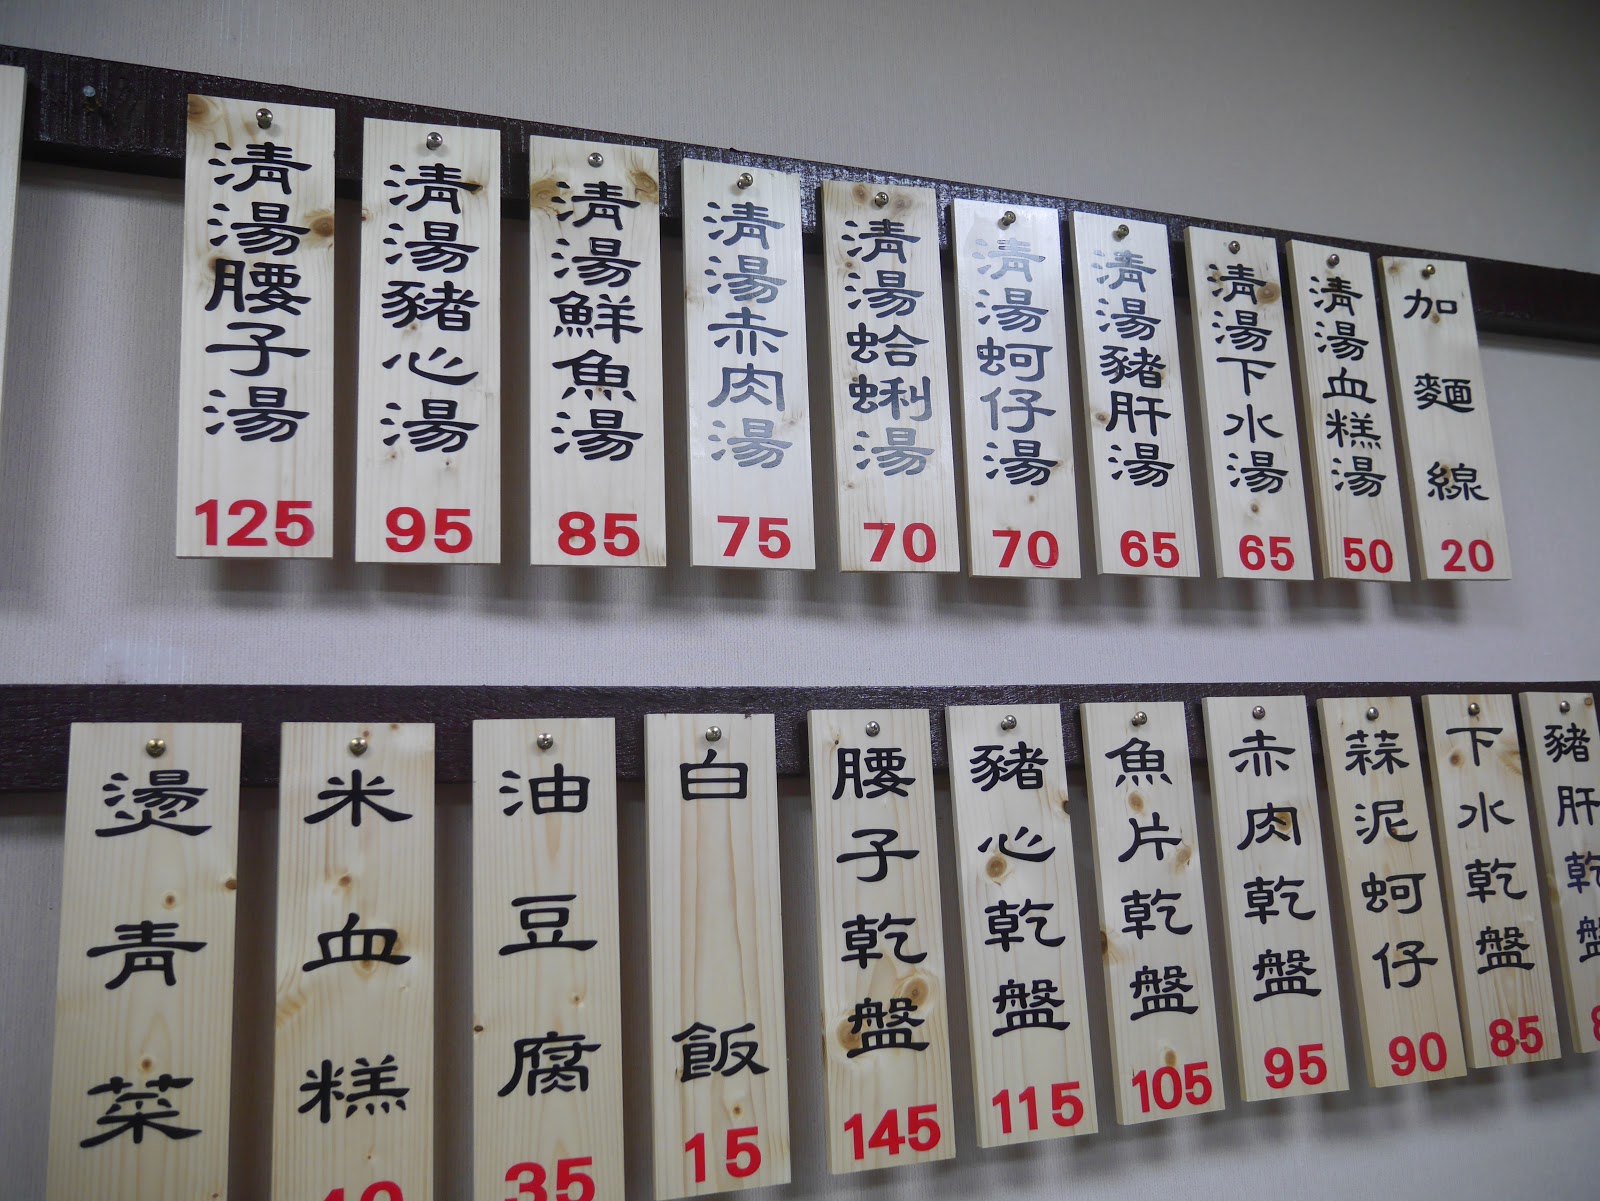 清湯腰子湯
125
清湯豬心湯
95
清湯鮮魚湯
85
清湯赤肉湯
75
清湯蛤蜊湯
70
清湯蚵仔湯
70
清湯豬肝湯
65
清湯下水湯
65
清湯血糕湯
50
加麵線
20
燙青菜
米血糕
油豆腐
35
白飯
15
腰子乾盤
145
豬心乾盤
115
魚片乾盤
105
赤肉乾盤
95
蒜泥蚵仔
90
下水乾盤
85
豬肝乾盤